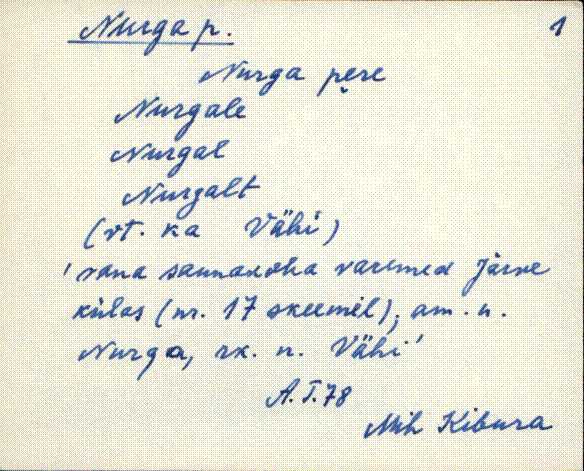 Nurga p. 1
Nurga pere
Nurgale
Nurgal
Nurgalt
(vt. ka Vähi)
'vana saunakoha varemed Järve
külas (nr. 17 skeemil), am. n.
Nurga, rk. n. Vähi'
A. T. 78
Mih Kibura